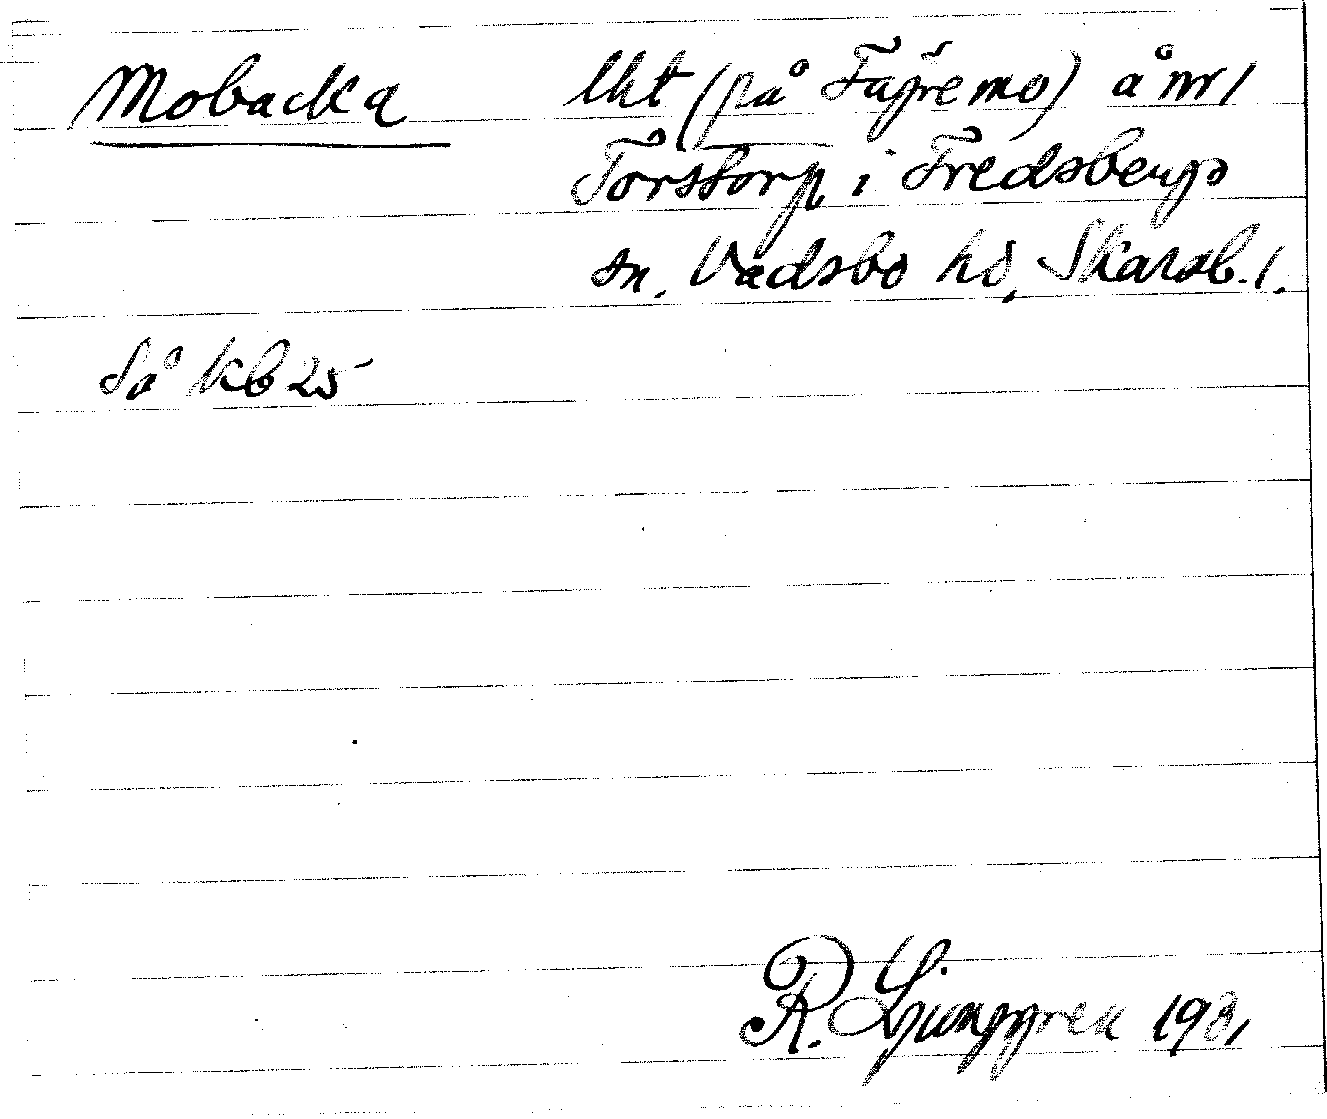 Mobacka lht (på Fägremo) å nr 1
Torstorp i Fredsbergs
sn. Vadsbo hd, Skarab. l.
Så kb 25
R. Ljunggren 1931